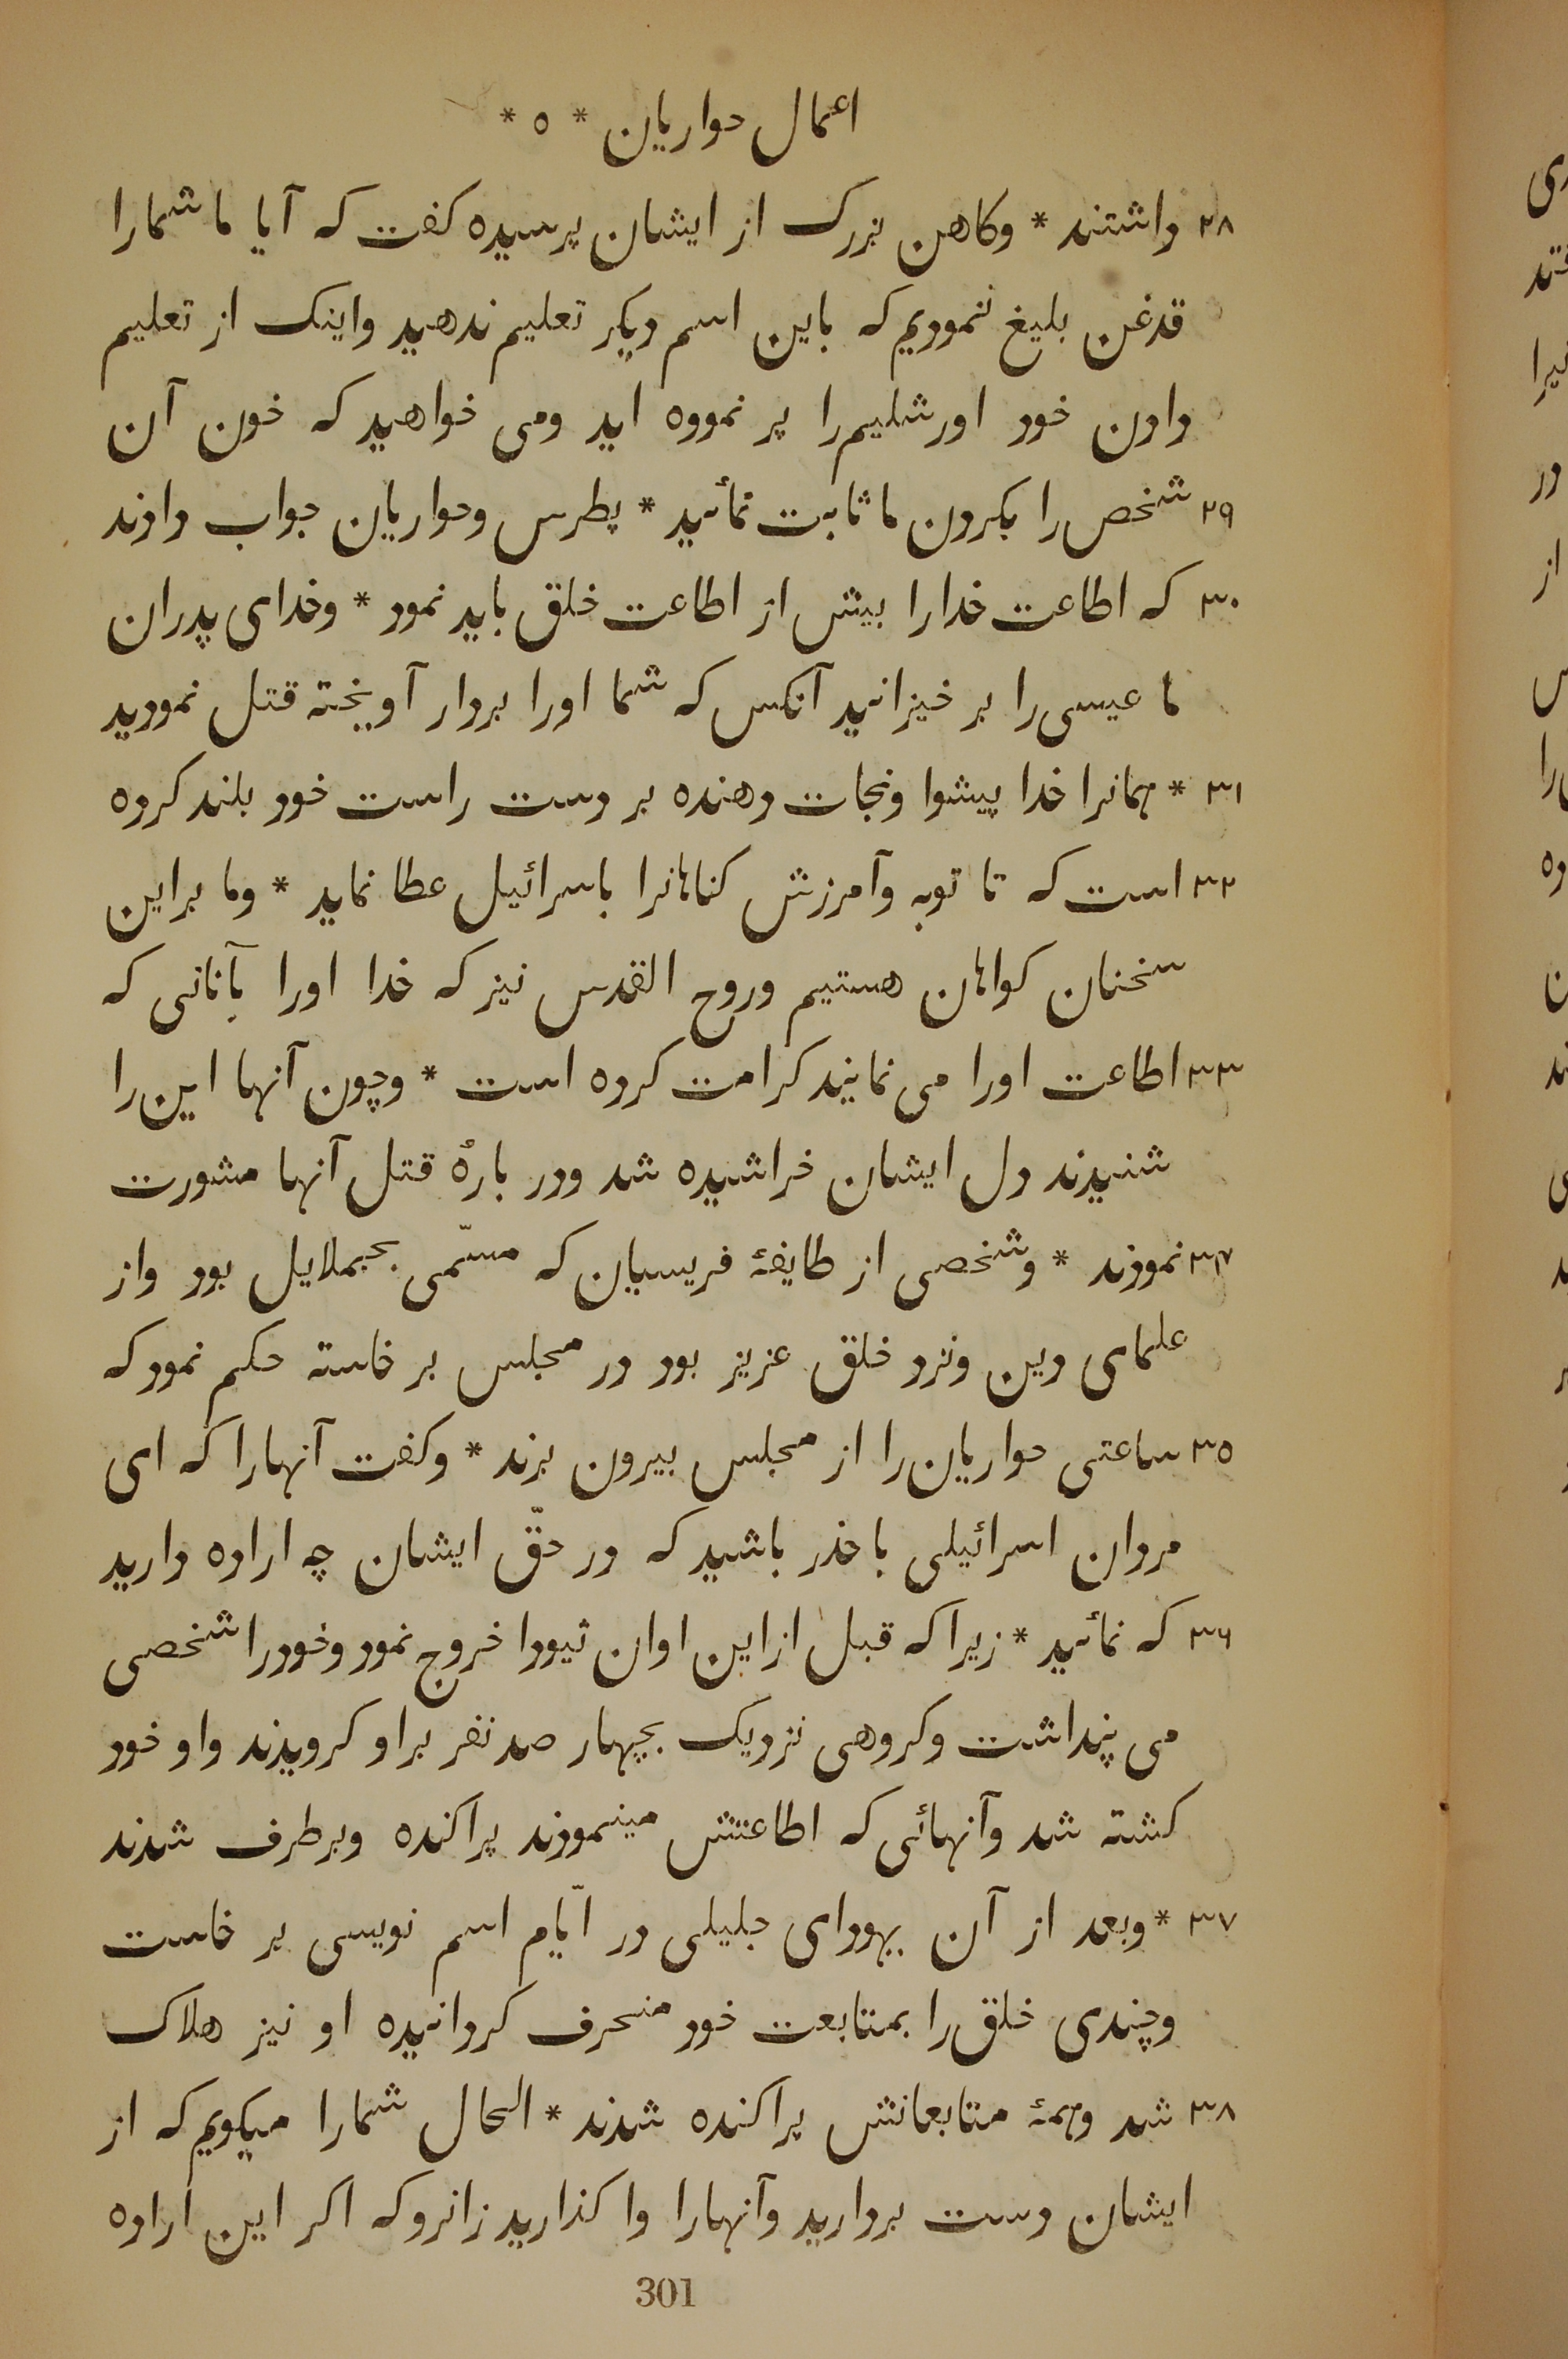 اعمال حواریان * ٥ *
٢٨ داشتند * وکاهن بزرک از ایشان پرسیده کفت که آیا ما شمارا
قدغن بلیغ ننمودیم که باین اسم دیکر تعلیم ندهید واینک از تعلیم
دادن خود اورشلیم‌را پر نموده اید ومی خواهید که خون آن
٢٩ شخص را بکردن ما ثابت نمائید * پطرس وحواریان جواب دادند
٣٠ که اطاعت خدارا بیش از اطاعت خلق باید نمود * وخدای پدران
ما عیسی را بر خیزانید آنکس که شما اورا بردار آویخته قتل نمودید
٣١ * همانرا خدا پیشوا ونجات دهنده بر دست راست خود بلند کرده
٣٢ است که تا توبه وآمرزش کناهانرا باسرائیل عطا نماید * وما براین
سخنان کواهان هستیم وروح القدس نیز که خدا اورا بآنانی که
٣٣ اطاعت اورا می نمایند کرامت کرده است * وچون آنها این را
شنیدند دل ایشان خراشیده شد ودر بارهٔ قتل آنها مشورت
٣٤ نمودند * وشخصی از طایفهٔ فریسیان که مسّمی بجملایل بود واز
علمای دین ونزد خلق عزیز بود در مجلس بر خاسته حکم نمود که
٣٥ ساعتی حواریان را از مجلس بیرون برند * وکفت آنهارا که ای
مردان اسرائیلی با خذر باشید که در حقّ ایشان چه اراده دارید
٣٦ که نمائید * زیرا که قبل ازاین اوان ثیودا خروج نمود وخودرا شخصی
می پنداشت وکروهی نزدیک بچهار صد نفر براو کرویدند واو خود
کشته شد وآنهائی که اطاعتش مینمودند پراکنده وبرطرف شدند
٣٧ * وبعد از آن یهودای جلیلی در ایّام اسم نویسی بر خاست
وچندی خلق را بمتابعت خود منحرف کردانیده او نیز هلاک
٣٨ شد وهمهٔ متابعانش پراکنده شدند * الحال شمارا میکویم که از
ایشان دست بردارید وآنهارا وا کذارید زانرو که اکر این اراده
301